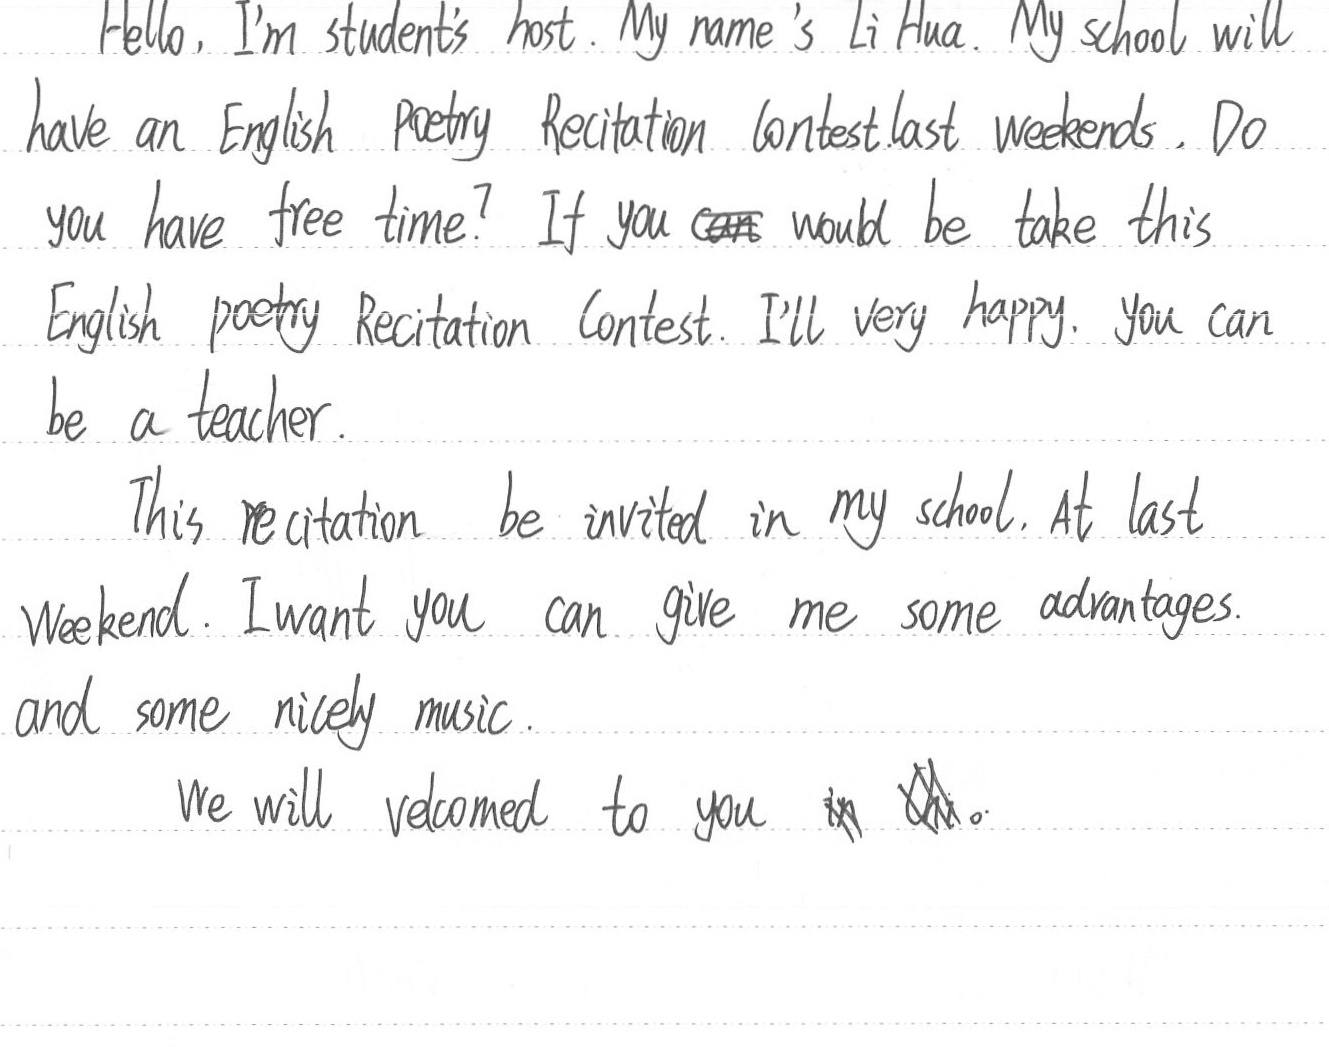 Hello, I'm student's host. My name's Li Hua. My school will
have an English Poetry Recitation Contest.last weekends. Do
you have free time? If you would be take this
English poetry Recitation Contest. I'll very happy. you can
be a teacher.
This recitation be invited in my school. At last
Weekend. I want you can give me some advantages.
and some nicely music.
We will velcomed to you.